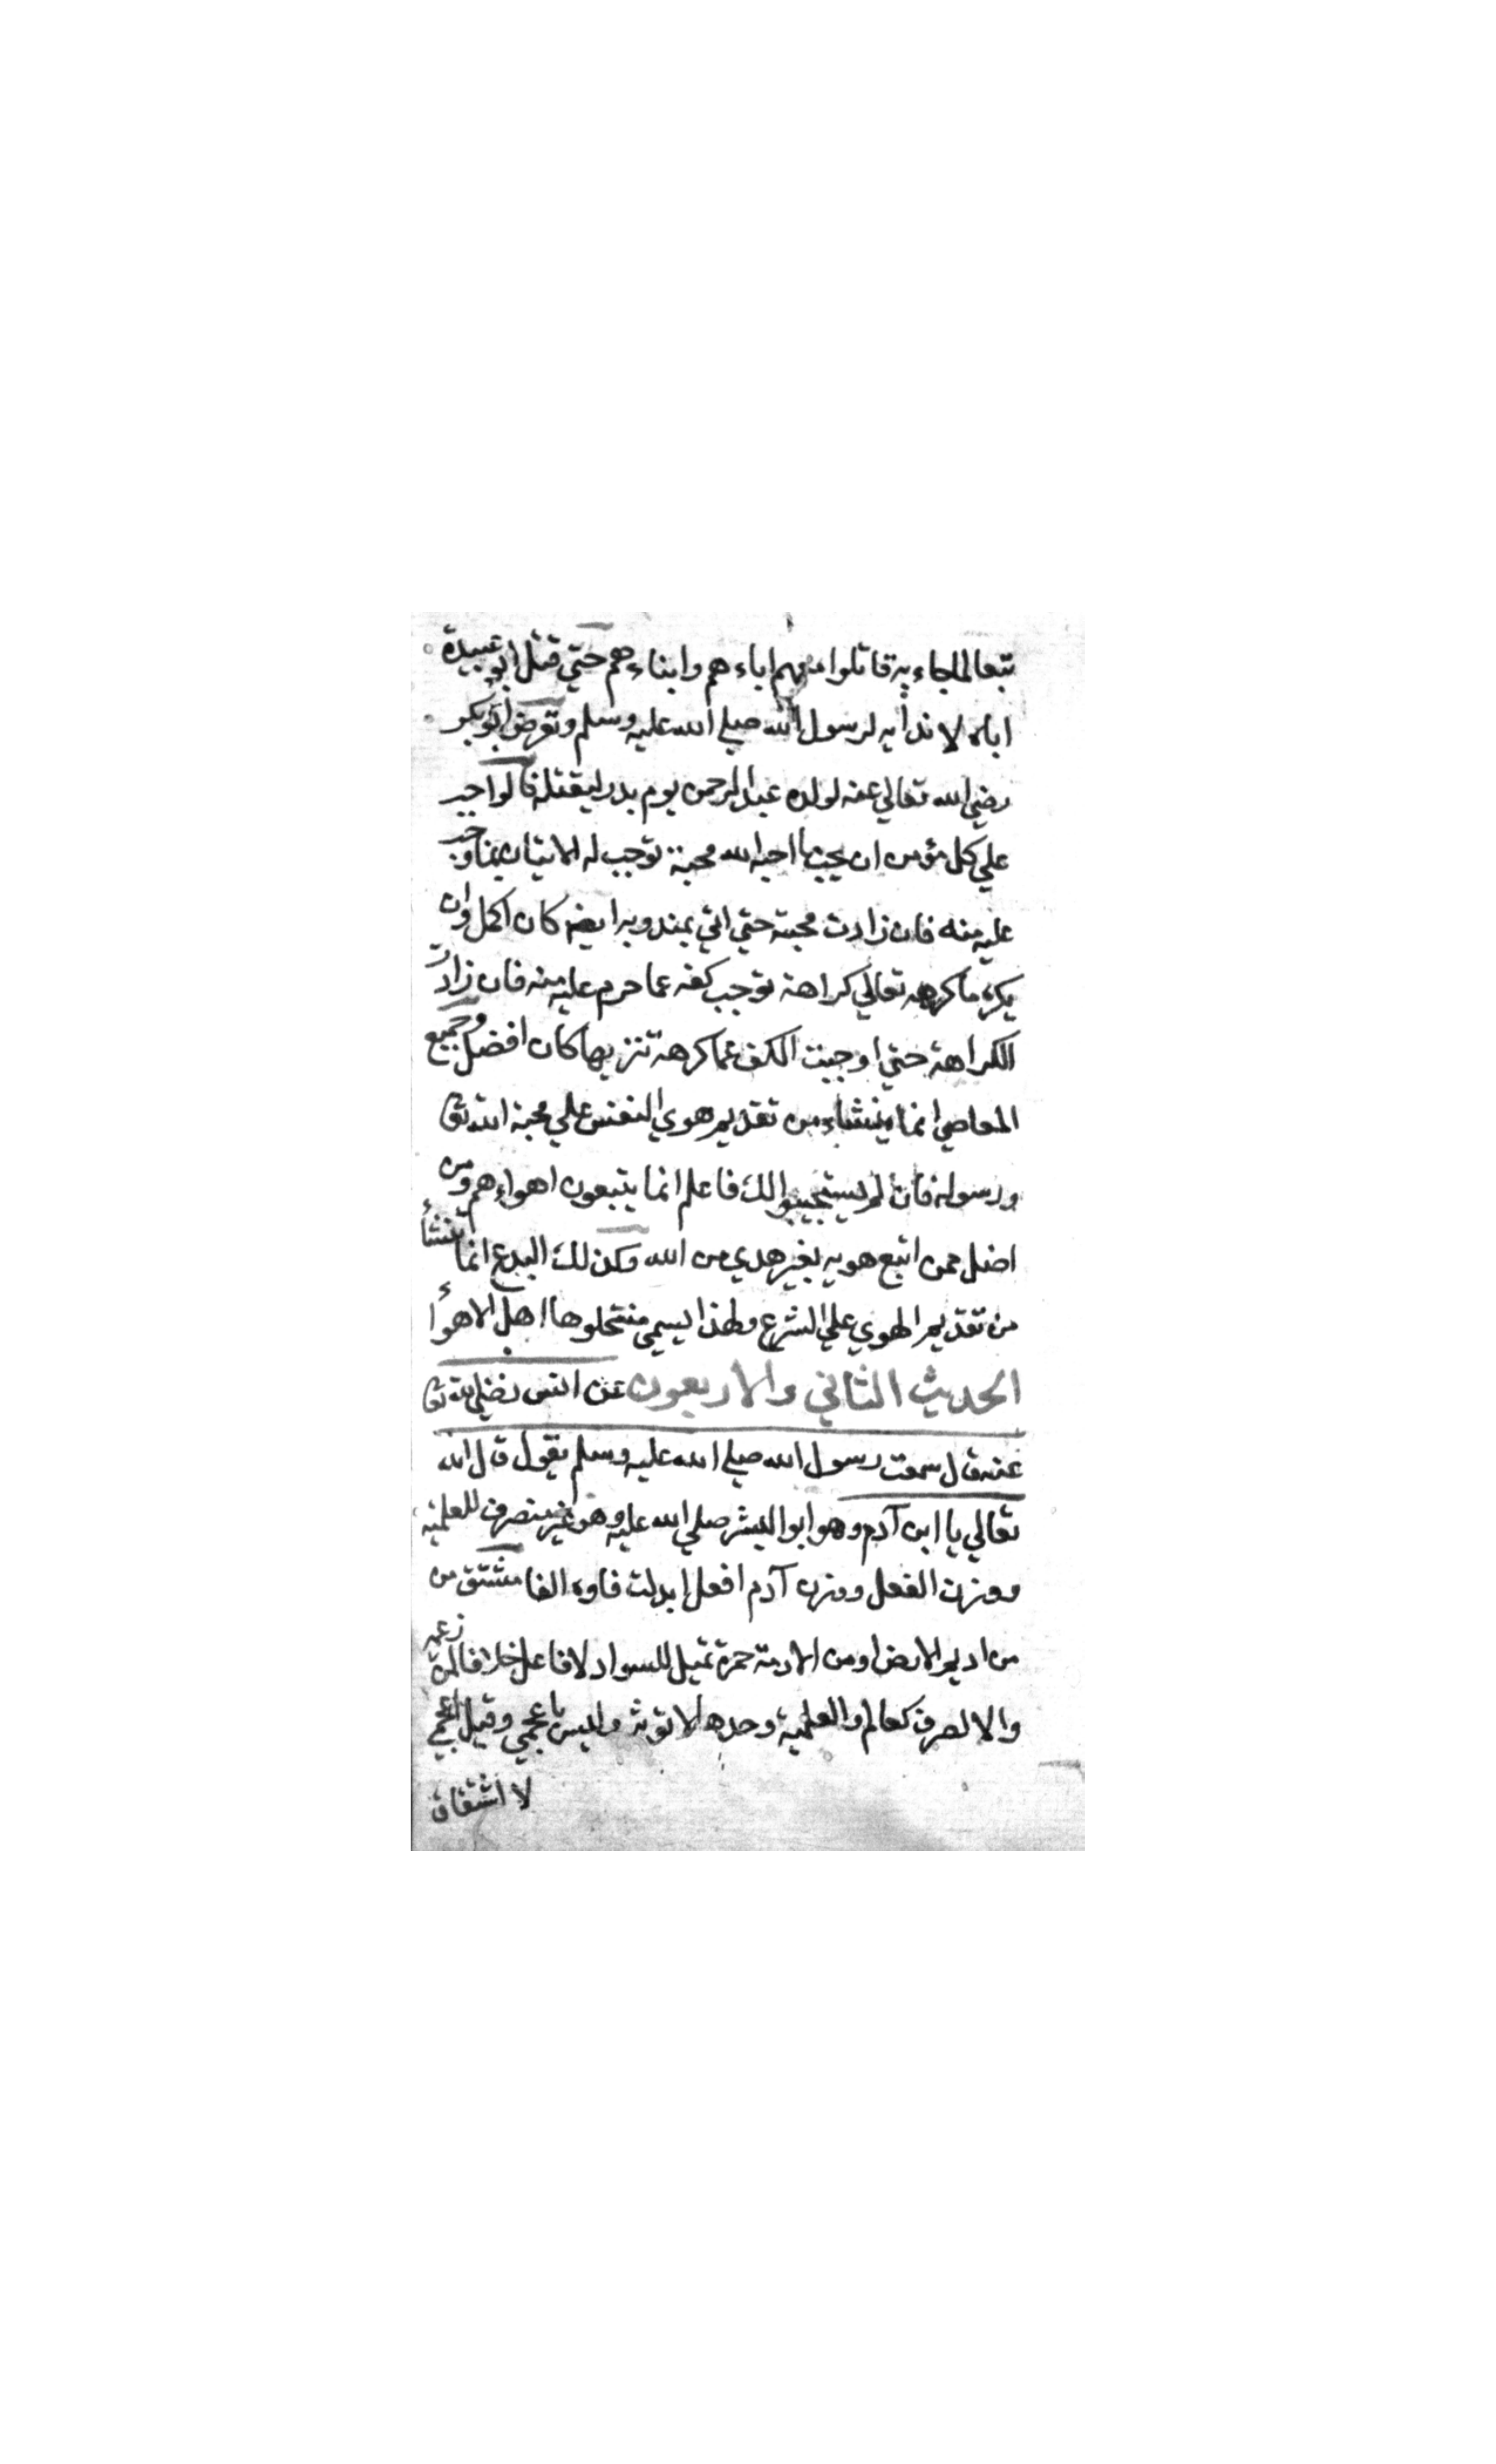 تبعا لما جاء به قاتلوا معهم اباءهم وابناءهم حتي قتل ابو عبيدة
اباه لايذائه لرسول الله صلي الله عليه وسلم وتعرض ابو بكر
رضي الله تعالي عنه لولده عبد الرحمن يوم بدر ليقتله فالواجب
علي كل مؤمن ان يحب ما احبه الله محبة توجب له الاتيان بما وجب
عليه منه فان زادت محبته حتي اتي بمندوبه ايضا كان اكمل وان
يكره ما كرهه تعالي كراهة توجب كفه عما حرم عليه منه فان زادت
الكراهة حتي اوجبت الكف عما كرهه تنزيها كان افضل وجميع
المعاصي انما ينشاء من تقديم هوي النفس علي محبة الله تعا
ورسوله فان لم يستجيبوا لك فاعلم انما يتبعون اهواءهم ومن
اضل ممن اتبع هويه بغير هدي من الله وكذلك البدع انما تنشأ
من تقديم الهوي علي الشرع ولهذا يسمي منتحلوها اهل الاهواء
الحديث الثاني والاربعون عن انس رضي الله تعا
عنه قال سمعت رسول الله صلي الله عليه وسلم يقول قال الله
تعالي يا ابن آدم وهو ابو البشر صلي الله عليه وهو غير منصرف للعلمية
ووزن الفعل ووزن آدم افعل ابدلت فاوه الفا مشتق من
من اديم الارض او من الادمة حمرة تميل للسواد لا فاعل خلافا لمن زعمه
والا لصرف كعالم والعلمية وحدها لا تؤثر وليس باعجمي وقيل اعجمي
لا اشتقاق